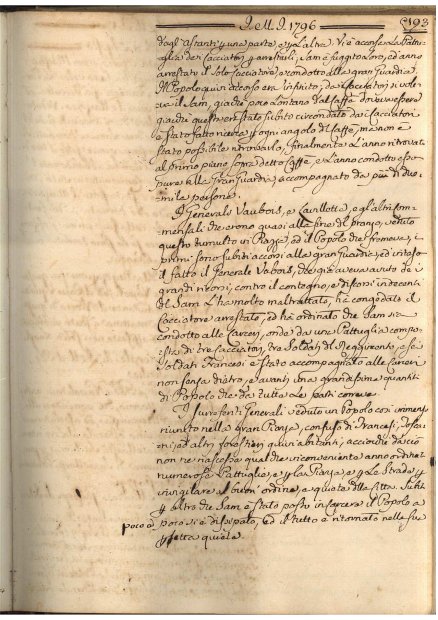 I. M. I. 1796 193
dagl'astanti p. una parte, e p. l'altra. Vi è accorsa la Pattu-
glia dei Cacciatori p. arrestarli, Sam è fuggito loro, ed anno
arrestato il solo Cacciatore, e condotto alla gran Guardia.
Il Popolo quivi accorso era infinito, da Cacciatori si vole-
va il Sam, giacchè poco lontano dal Caffè doveva essere
giacchè questo era stato subito circondato dai Cacciatori
è stato fatto ricerca p. ogni angolo di Caffè, ma non è
stato possibile ritrovarlo, finalmente l'anno ritrovato
al primo piano sopra detto Caffè, e l'anno condotto ep-
pure alla Gran Guardia, accompagnato da più di due
mila persone.
I Generali Vaubois, e Cavillotta, e gl'altri Com-
mensali che erono quasi alla fine di pranzo, veduto
questo tumulto in Piazza, ed il Popolo che fremeva, i
primi sono subiti accorsi alla gran Guardia, ed inteso
il fatto il Generale Vobois, che già aveva avuto de i
grandi ricorsi, contro il contegno, e discorsi indecenti
del Sam l'ha molto maltrattato, ha congedato il
Cacciatore arrestato, ed ha ordinato che Sam sia
condotto alle Carceri, onde da una Pattuglia compo-
sta di tre Cacciatori, tre Soldati del Reggimento, e sei
Soldati Francesi è stato accompagnato alle Carceri
non senza dietro, e avanti una grandissima quantità
di Popolo che da tutte le parti correva.
I surriferiti Generali veduto un Popolo così immenso
riunito nella gran Piazza, confuso di Francesi, Tosca-
ni, ed altri forestieri quivi abitanti, acciocchè da ciò
non ne nascesse qualche inconveniente anno ordinat
numerose Pattuglie, e p. la Piazza, e p. le Strade p.
invigilare al buon'ordine, e quiete della Città. Subit
p. altro che Sam è stato posto in carcere il Popolo a
poco a poco si è dissipato, ed il tutto è ritornato nella sua
p.fetta quiete.